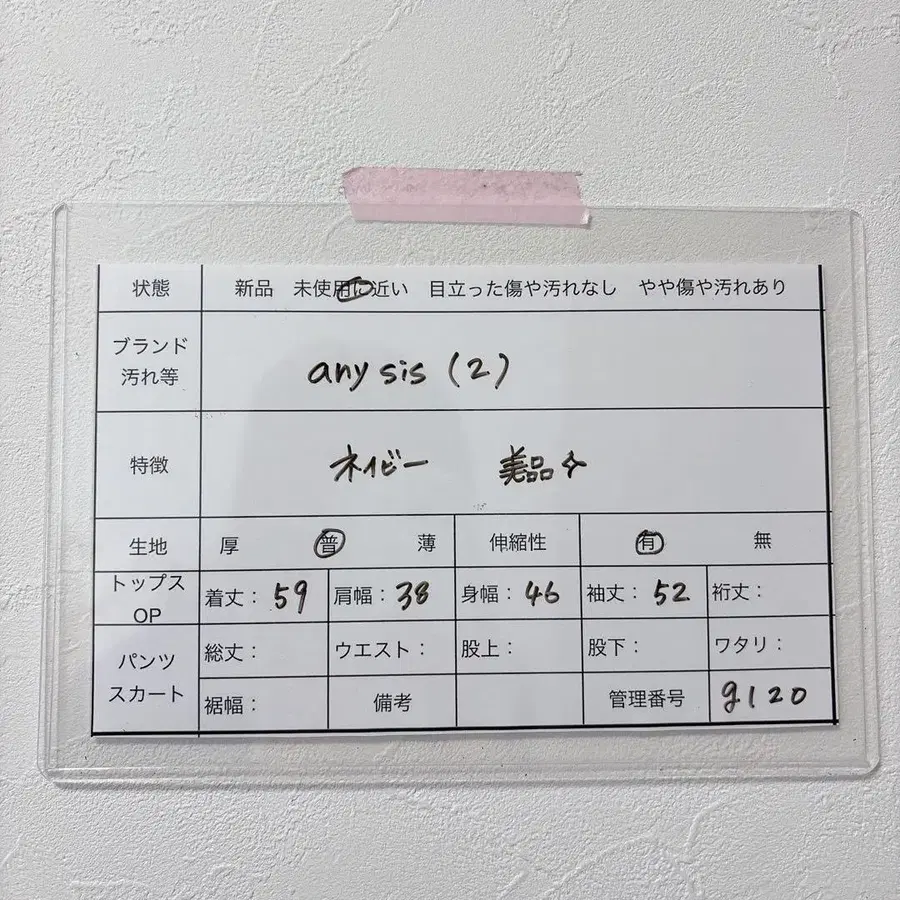 状態 新品 未使用に近い 目立った傷や汚れなし やや傷や汚れあり
ブランド
汚れ等 any sis (2)
特徴 ネイビー 美品✧
生地 厚 普 薄 伸縮性 有 無
トップス
OP 着丈: 59 肩幅: 38 身幅: 46 袖丈: 52 裄丈:
パンツ
スカート 総丈: ウエスト: 股上: 股下: ワタリ:
裾幅: 備考 管理番号 g120